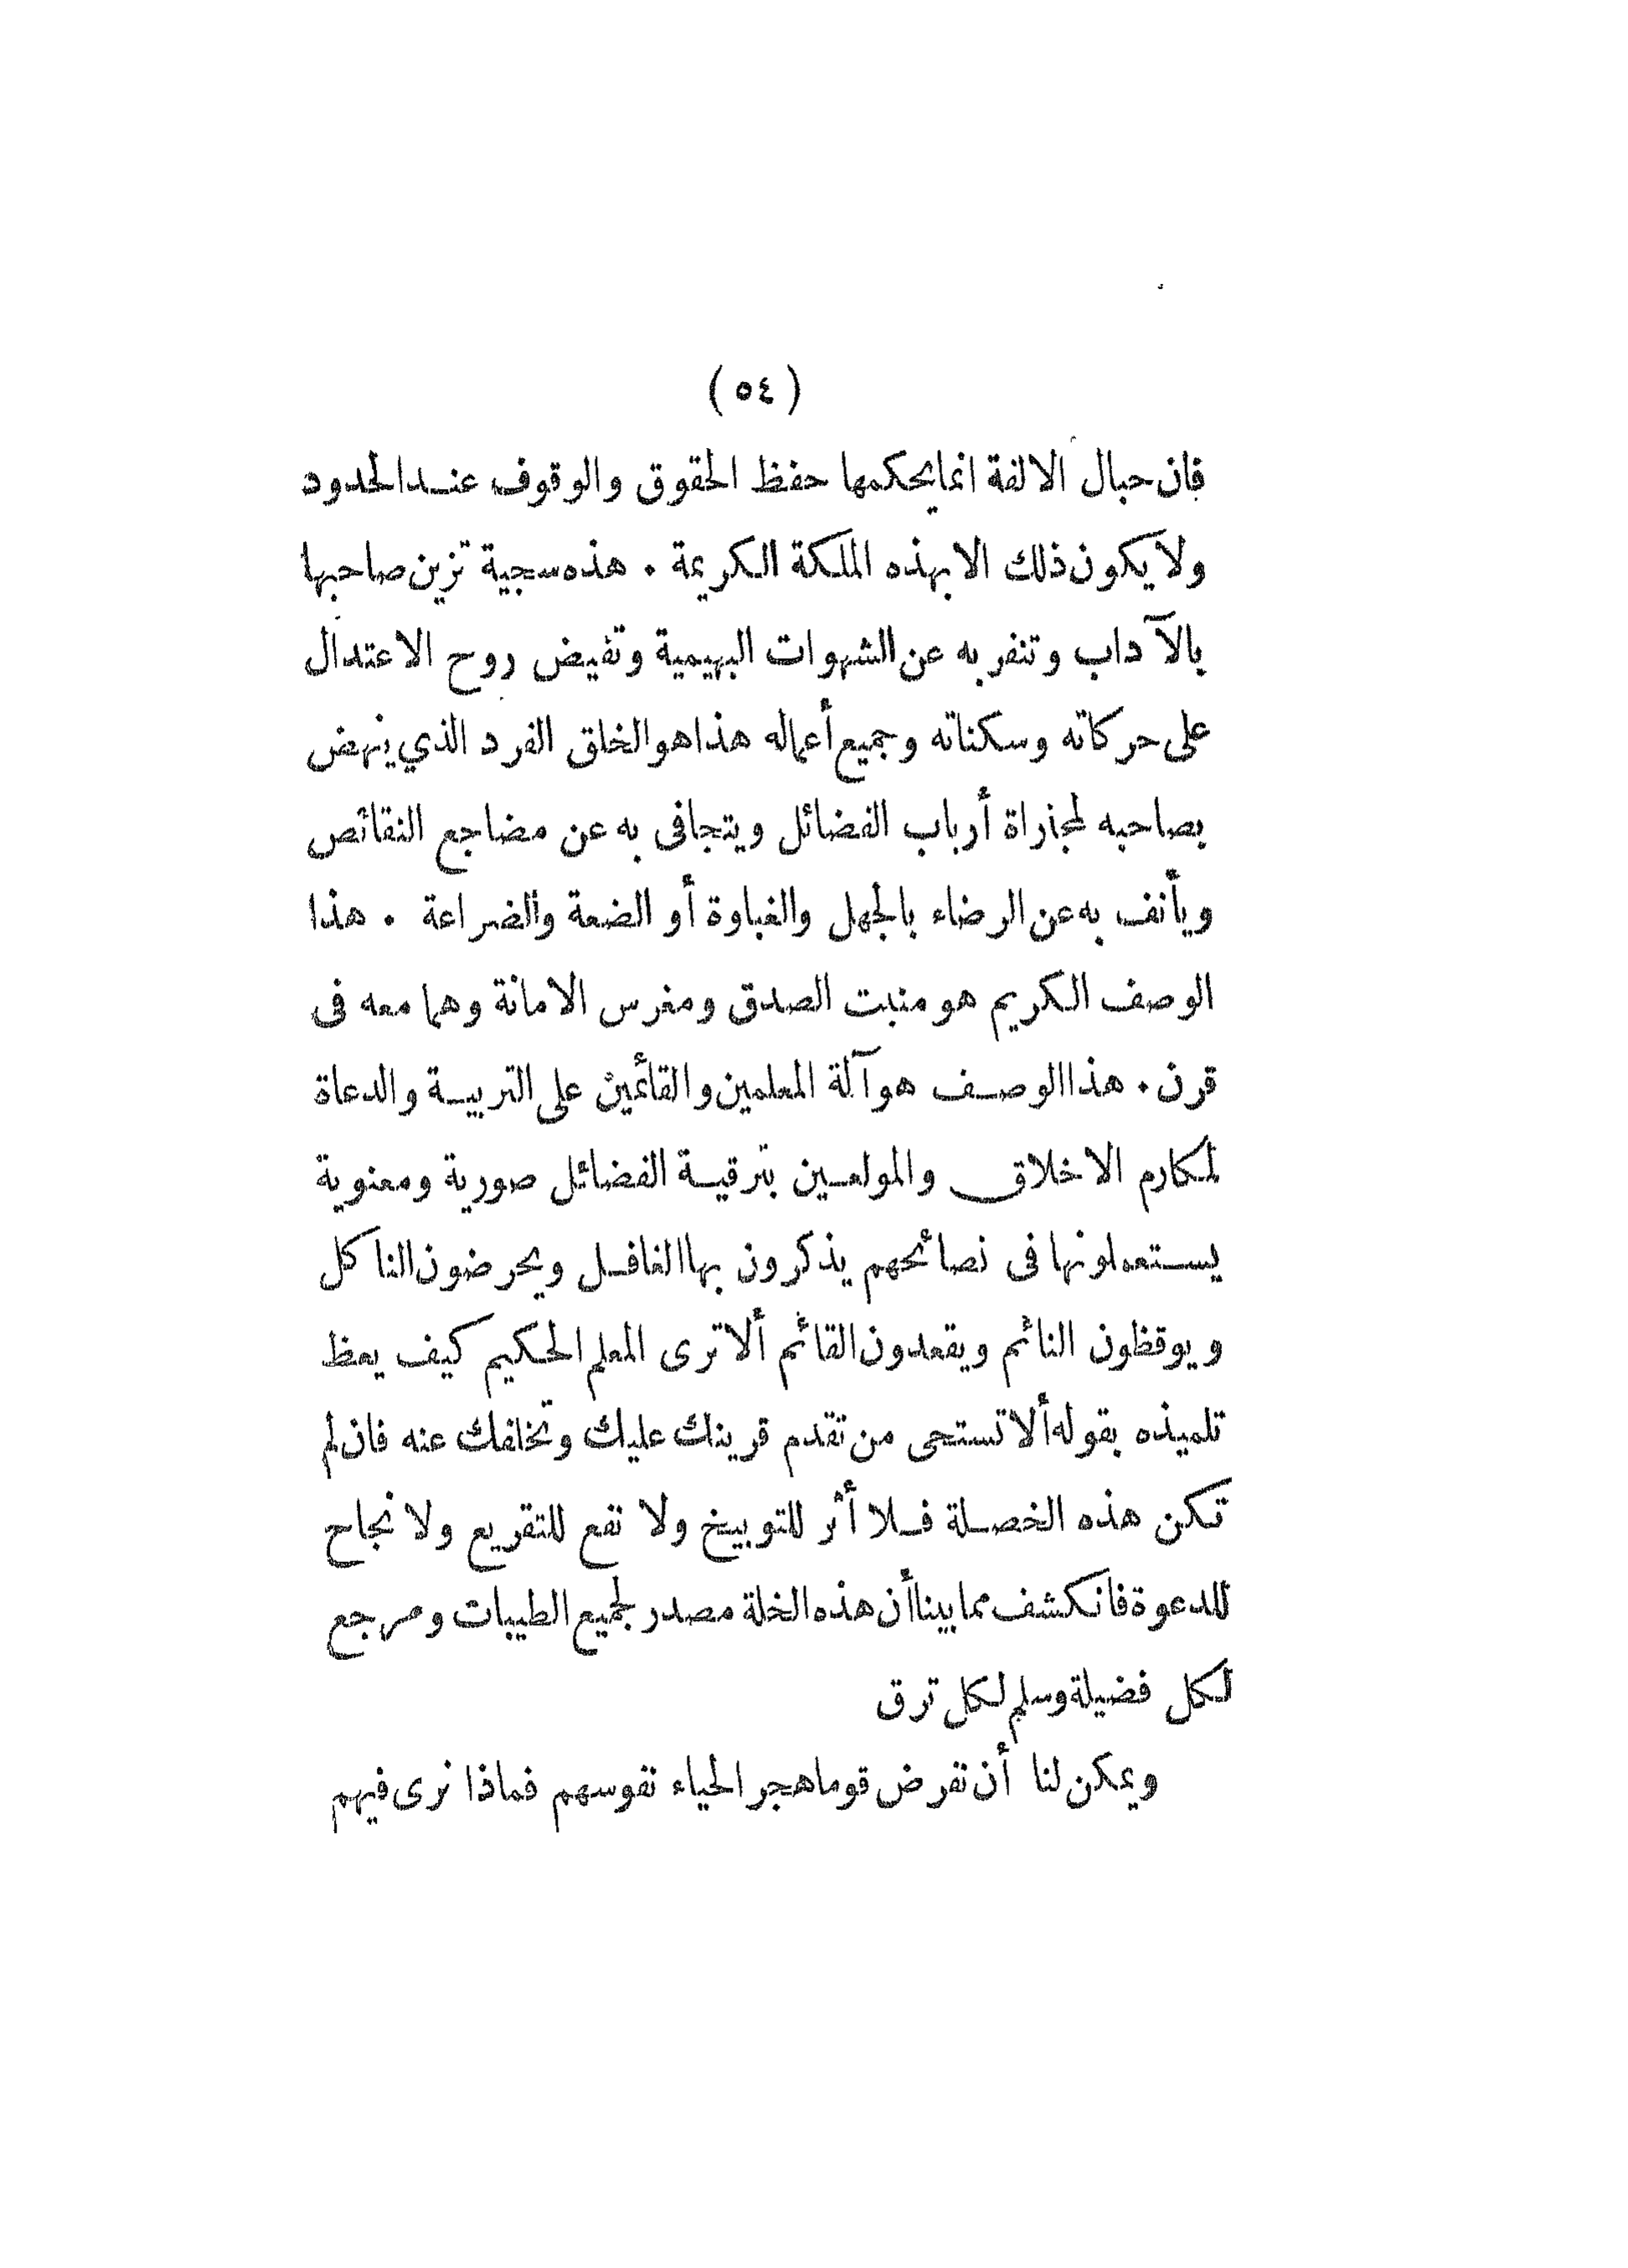 (٥٤)
فان حبال الالفة انما يحكمها حفظ الحقوق والوقوف عند الحدود
ولا يكون ذلك الا بهذه الملكة الكريمة . هذه سجية تزين صاحبها
بالآداب وتنفر به عن الشهوات البهيمية وتفيض روح الاعتدال
على حركاته وسكناته وجميع أعماله هذا هو الخلق الفرد الذي ينهض
بصاحبه لمجاراة أرباب الفضائل ويتجافى به عن مضاجع النقائص
ويأنف به عن الرضاء بالجهل والغباوة أو الضعة والضراعة . هذا
الوصف الكريم هو منبت الصدق ومغرس الامانة وهما معه فى
قرن . هذا الوصف هو آلة المعلمين والقائمين على التربية والدعاة
لمكارم الاخلاق والمولعين بترقية الفضائل صورية ومعنوية
يستعملونها فى نصائحهم يذكرون بها الغافل ويحرضون الناكل
ويوقظون النائم ويقعدون القائم ألا ترى المعلم الحكيم كيف يعظ
تلميذه بقوله ألا تستحى من تقدم قرينك عليك وتخلفك عنه فان لم
تكن هذه الخصلة فلا أثر للتوبيخ ولا نفع للتقريع ولا نجاح
للدعوة فانكشف مما بينا أن هذه الخلة مصدر لجميع الطيبات ومرجع
لكل فضيلة وسلم لكل ترق
ويمكن لنا أن نفرض قوما هجر الحياء نفوسهم فماذا نرى فيهم